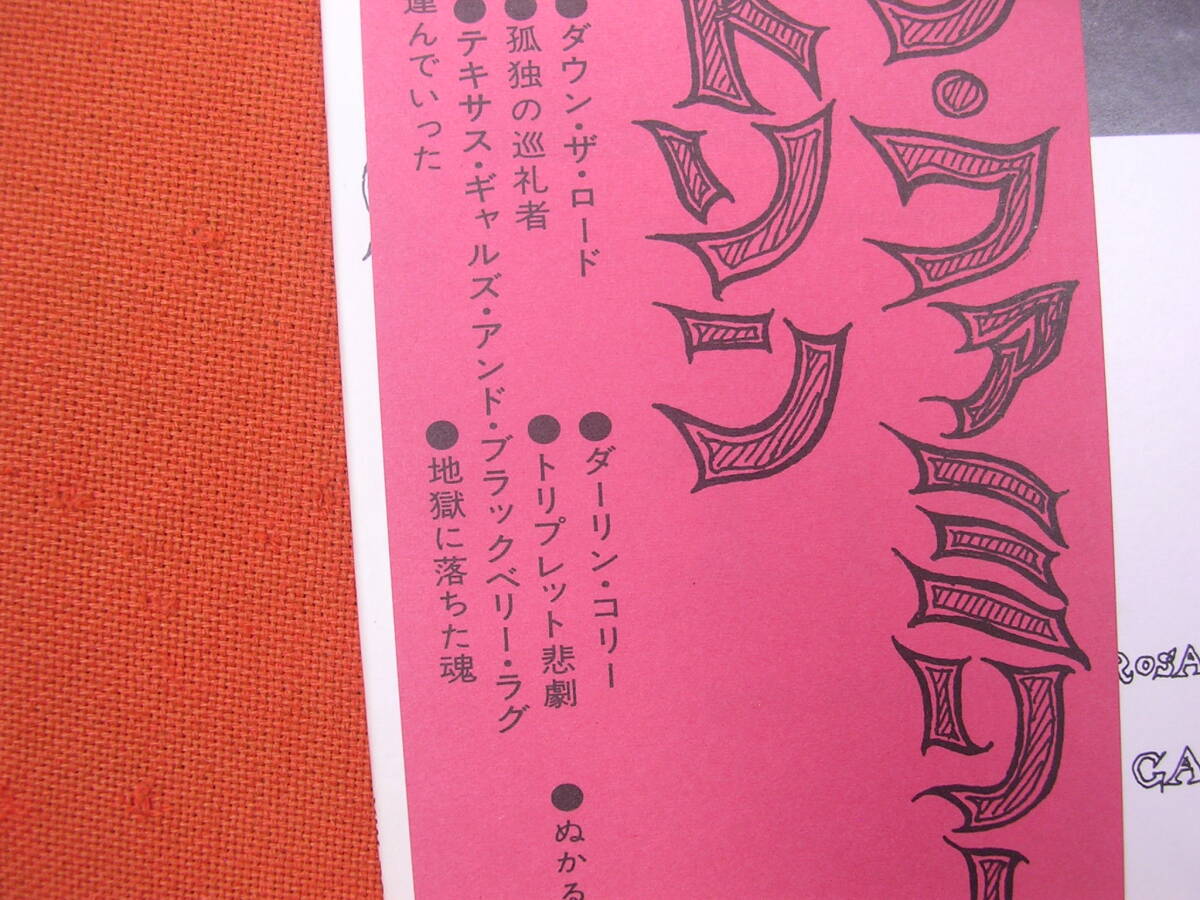 ・ファミリー
トリン
●ダウン・ザ・ロード
●ダーリン・コリー
●ぬかる
●孤独の巡礼者
●トリプレット悲劇
●テキサス・ギャルズ・アンド・ブラックベリー・ラグ
運んでいった
●地獄に落ちた魂
ROSA
GA